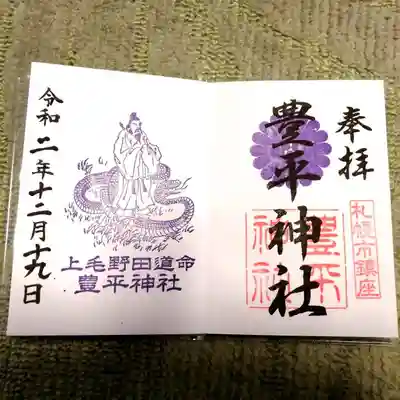 奉拝
豊平神社
札幌市鎮座
豊平神社
上毛野田道命
豊平神社
令和二年十二月十九日